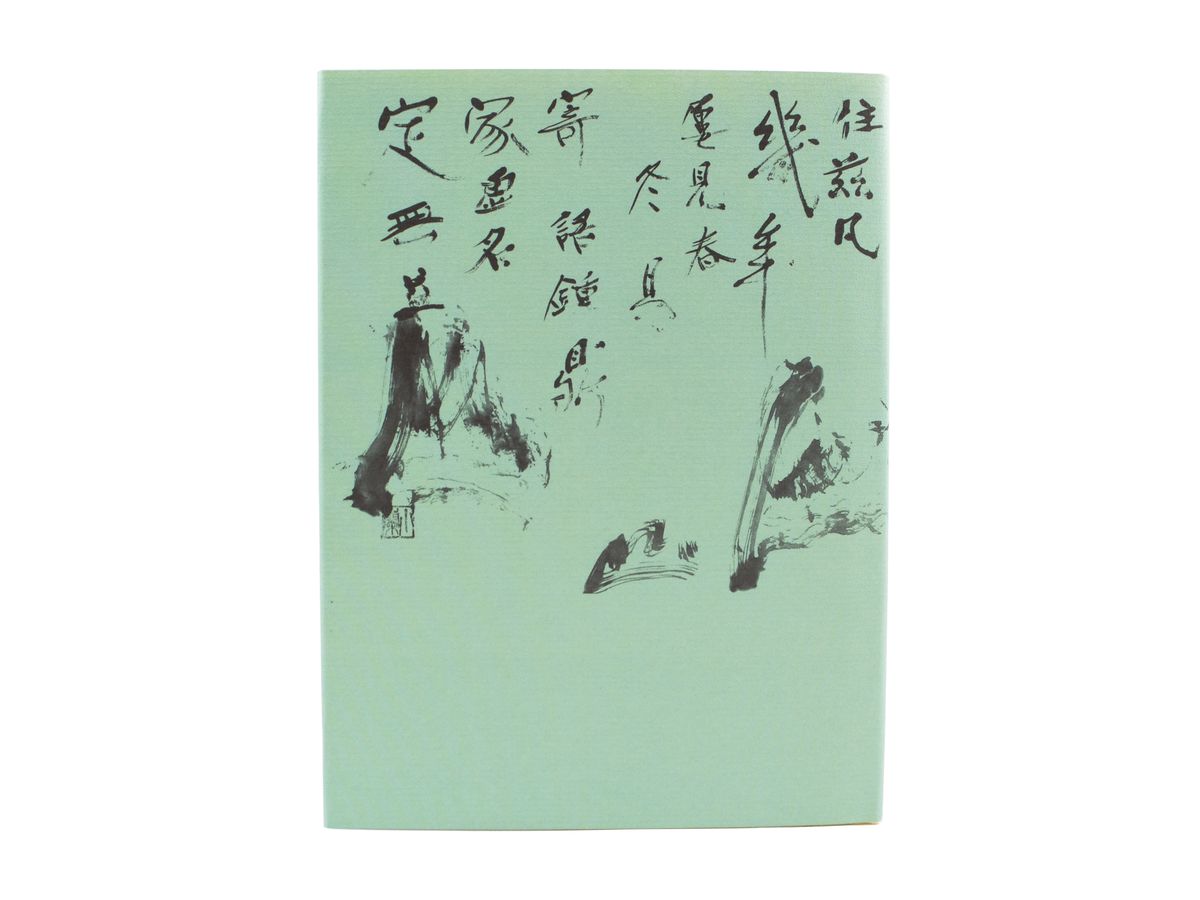 住茲凡
幾年
屢見春
冬易
寄語鍾鼎
家虛名
定無益